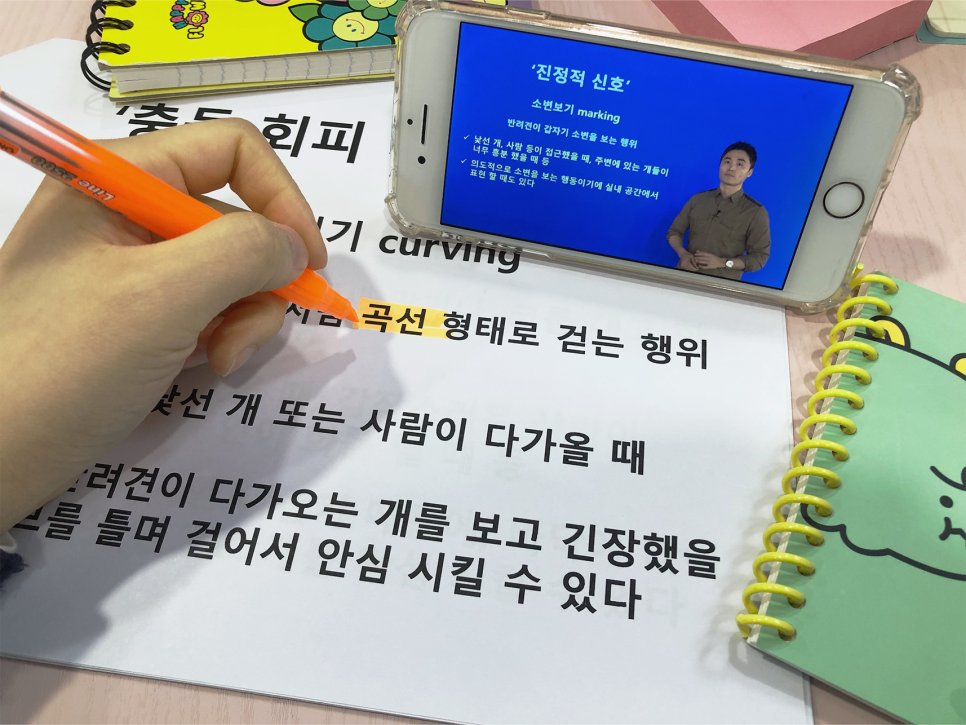 ‘진정적 신호’
소변보기 marking
반려견이 갑자기 소변을 보는 행위
✓ 낯선 개, 사람 등이 접근했을 때, 주변에 있는 개들이
너무 흥분 했을 때 등
✓ 의도적으로 소변을 보는 행동이기에 실내 공간에서
표현 할 때도 있다
‘충돌 회피
curving
곡선 형태로 걷는 행위
낯선 개 또는 사람이 다가올 때
반려견이 다가오는 개를 보고 긴장했을
틀며 걸어서 안심 시킬 수 있다